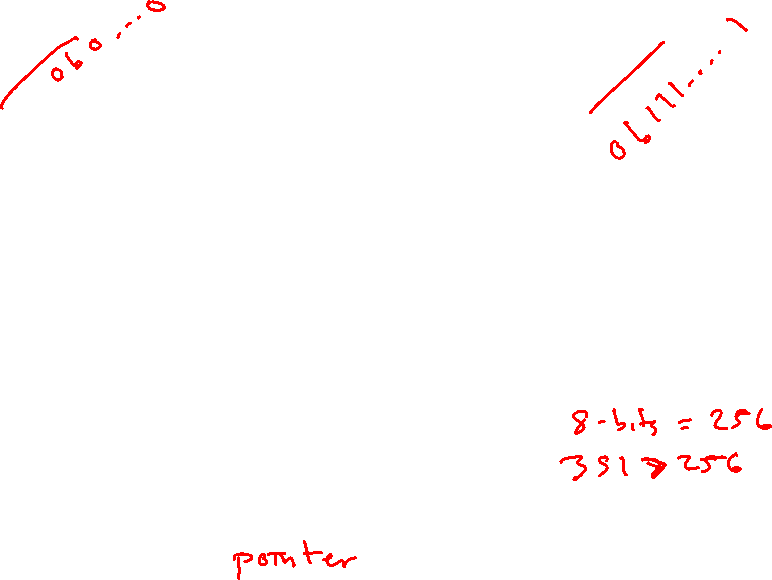 0b0...0
0b111....1
8-bits = 256
351 > 256
pointer